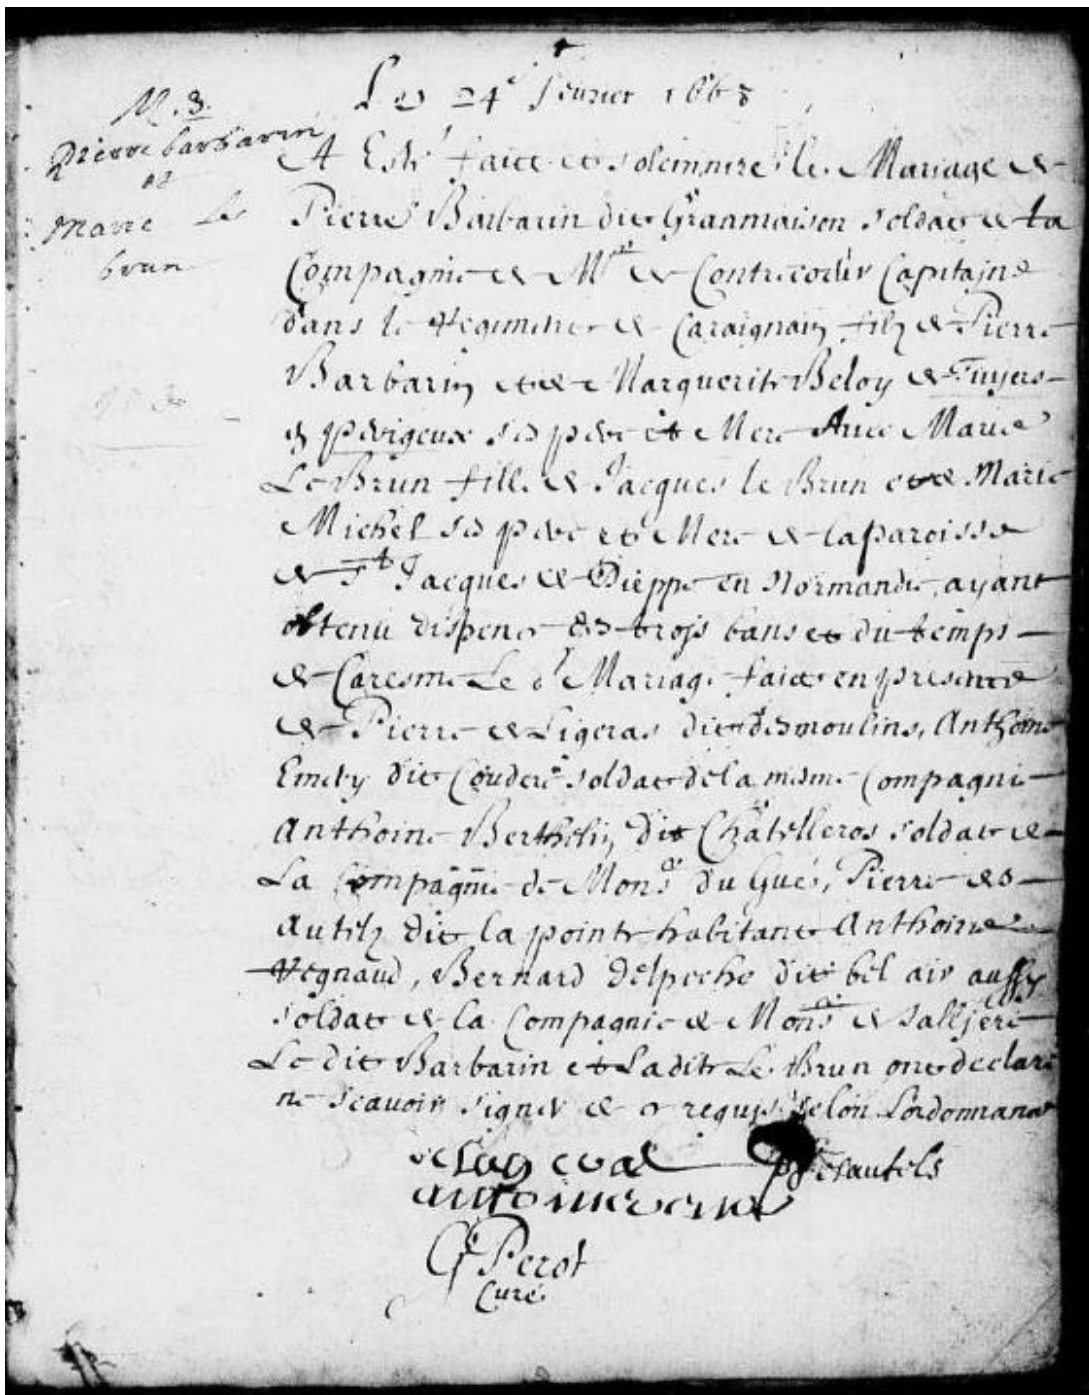 M. 3.
pierre barbarin
et
Marie Le
brun
Le 24e feurier 1668
A Esté faict et solemnizé le Mariage de
Pierre Barbarin dit Granmaison soldat de La
Compagnie de Mr de Contrecoeur Capitaine
dans le Regiment de Caraignan filz de Pierre
Barbarin et de Marguerite Beloy de
en perigeux ses pere et Mere Auec Marie
Le Brun fille de Jacques le Brun et de Marie
Michel ses pere et Mere de la paroisse
de St Jacques de Dieppe en Normandie, ayant
obtenu dispense des trois bans et du temps
de Caresme Le dt Mariage faict en presence
de Pierre de Ligeras dit desmoulins, Anthoine
Emery dit Coudere soldat de la mesme Compagnie
Anthoine Berthelin dit Chatelleros soldat de
La Compagnie de Monsr du Gué, Pierre des
autelz dit la pointe habitant Anthoine
Regnaud, Bernard Delpeche dit bel air aussy
soldat de la Compagnie de Monsr de
Le dit Barbarin et Ladite Le Brun ont declaré
ne scauoir signer de ce requis selon Lordonnance
desautels
G Perot
Curé